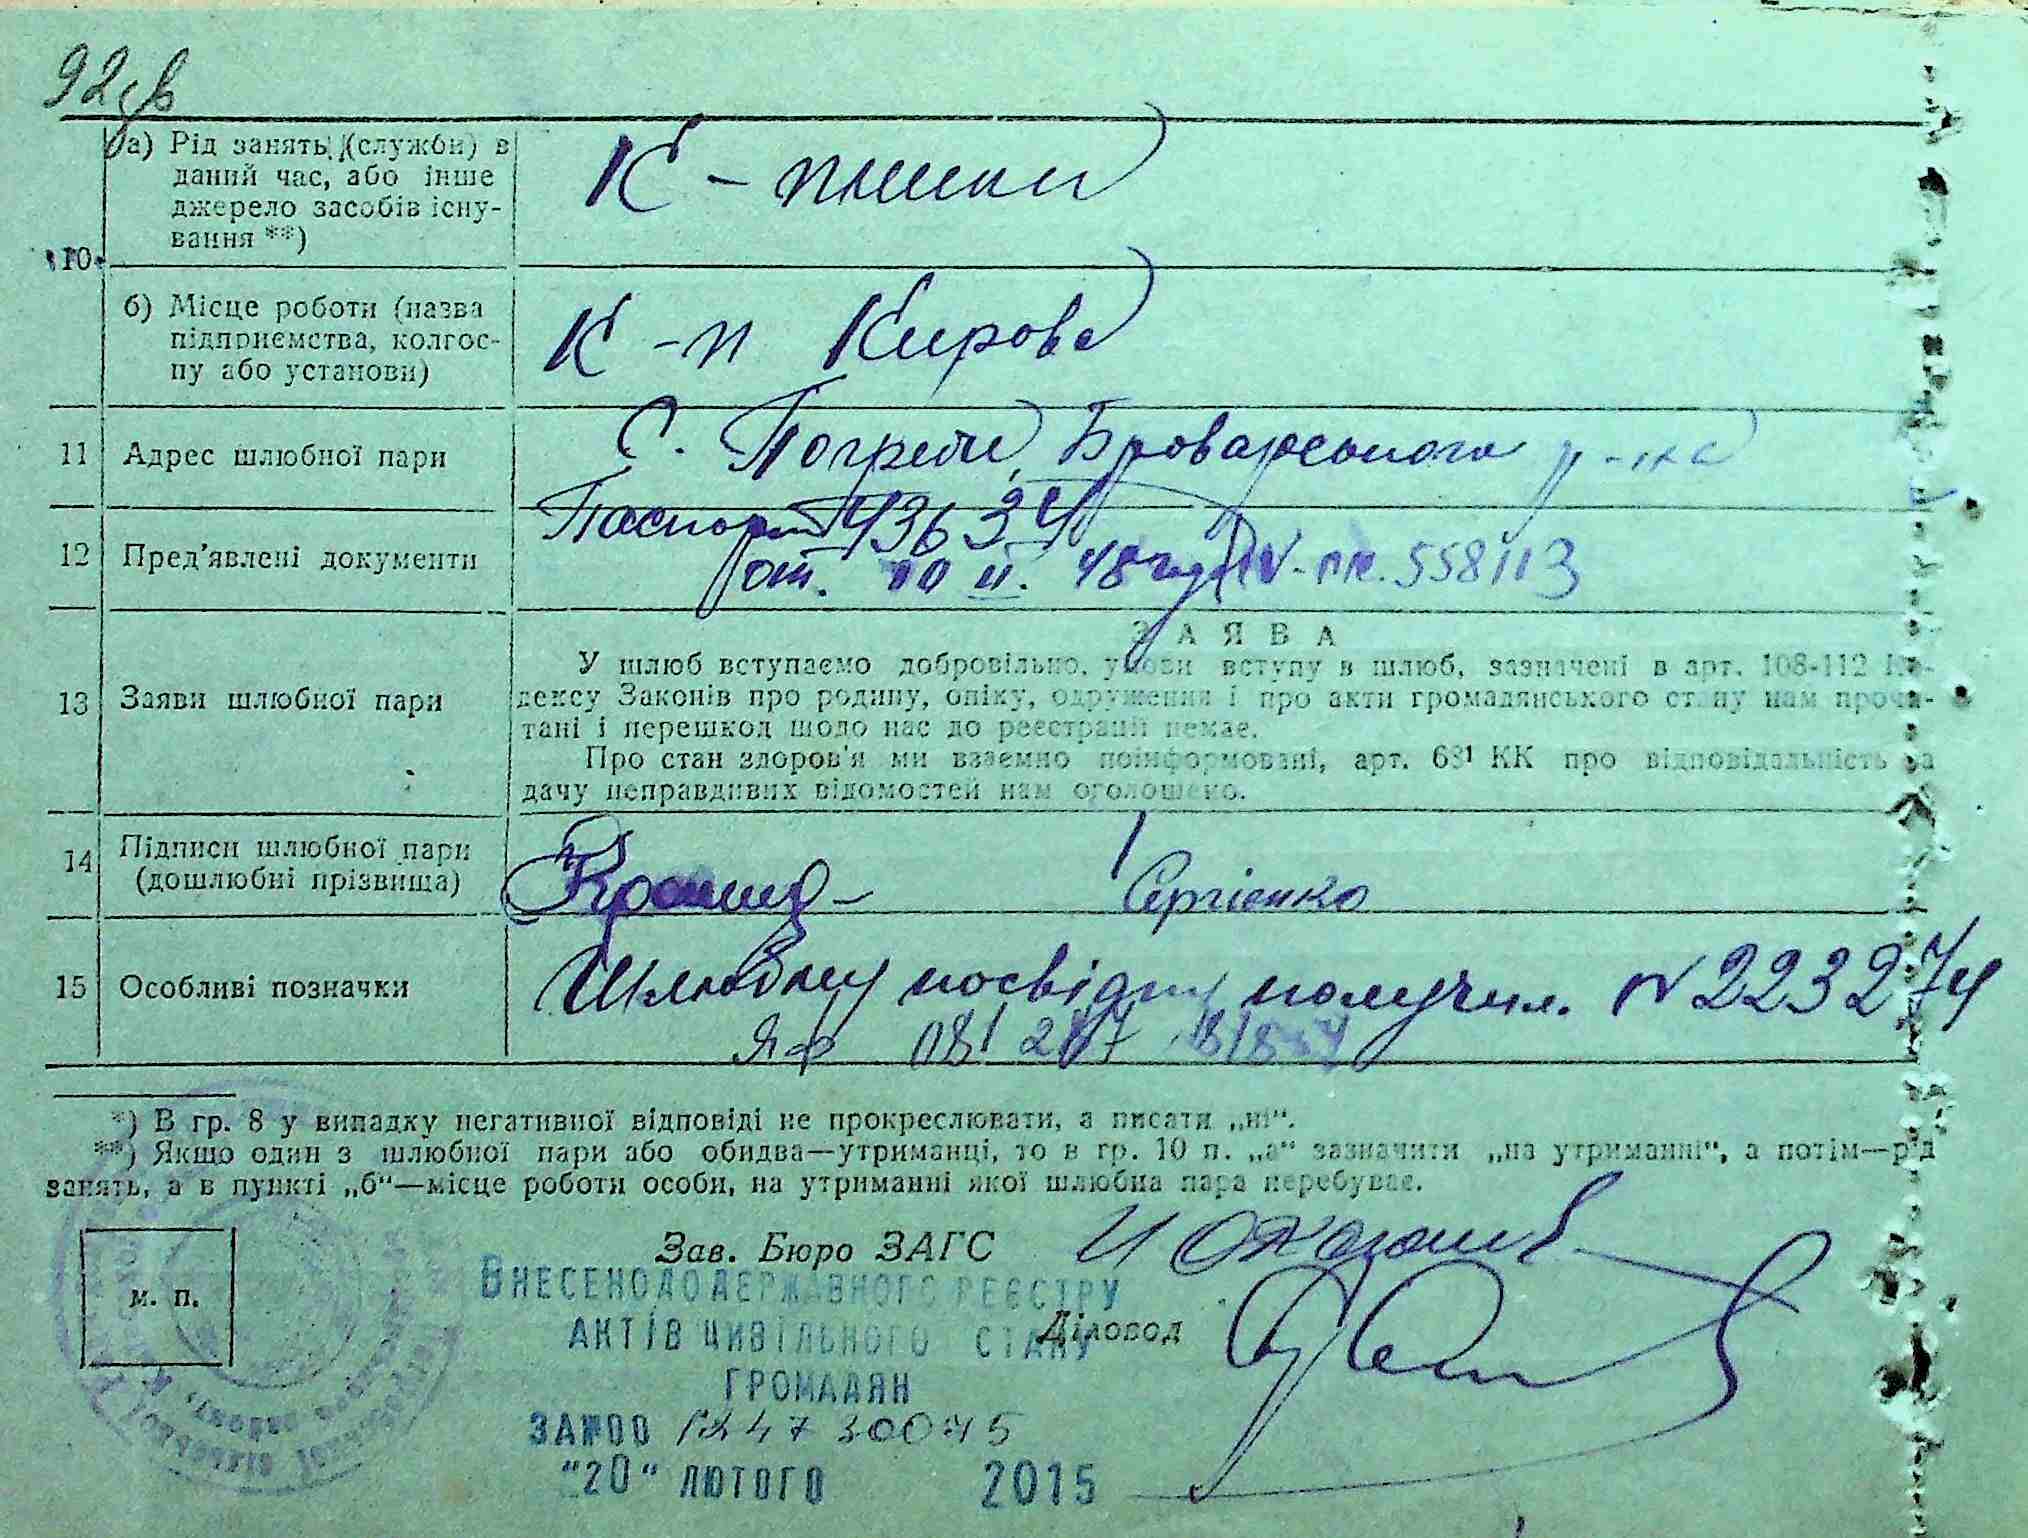 92
10
а) Рід занять (служби) в
даний час, або інше
джерело засобів існу-
вання **)
К-пники
б) Місце роботи (назва
підприємства, колгос-
пу або установи)
К-п Кирова
11 Адрес шлюбної пари
С. Погреби, Броварського р-на
12 Пред'явлені документи
Паспорт 43634
от. 10 II. 48 года IV- 558113
13 Заяви шлюбної пари
ЗАЯВА
У шлюб вступаємо добровільно, умови вступу в шлюб, зазначені в арт. 108-112 Ко-
дексу Законів про родину, опіку, одруження і про акти громадянського стану нам прочи-
тані і перешкод щодо нас до реєстрації немає.
Про стан здоров'я ми взаємно поінформовані, арт. 63¹ КК про відповідальність за
дачу неправдивих відомостей нам оголошено.
14 Підписи шлюбної пари
(дошлюбні прізвища)
Сергієнко
15 Особливі позначки
Шлюбну посвідку получил. N 223274
*) В гр. 8 у випадку негативної відповіді не прокреслювати, а писати „ні“.
**) Якщо один з шлюбної пари або обидва—утриманці, то в гр. 10 п. „а“ зазначити „на утриманні“, а потім—рід
занять, а в пункті „б“—місце роботи особи, на утриманні якої шлюбна пара перебуває.
м. п.
Зав. Бюро ЗАГС
Діловод
ВНЕСЕНО ДО ДЕРЖАВНОГО РЕЄСТРУ
АКТІВ ЦИВІЛЬНОГО СТАНУ
ГРОМАДЯН
ЗА №00
"20" ЛЮТОГО 2015